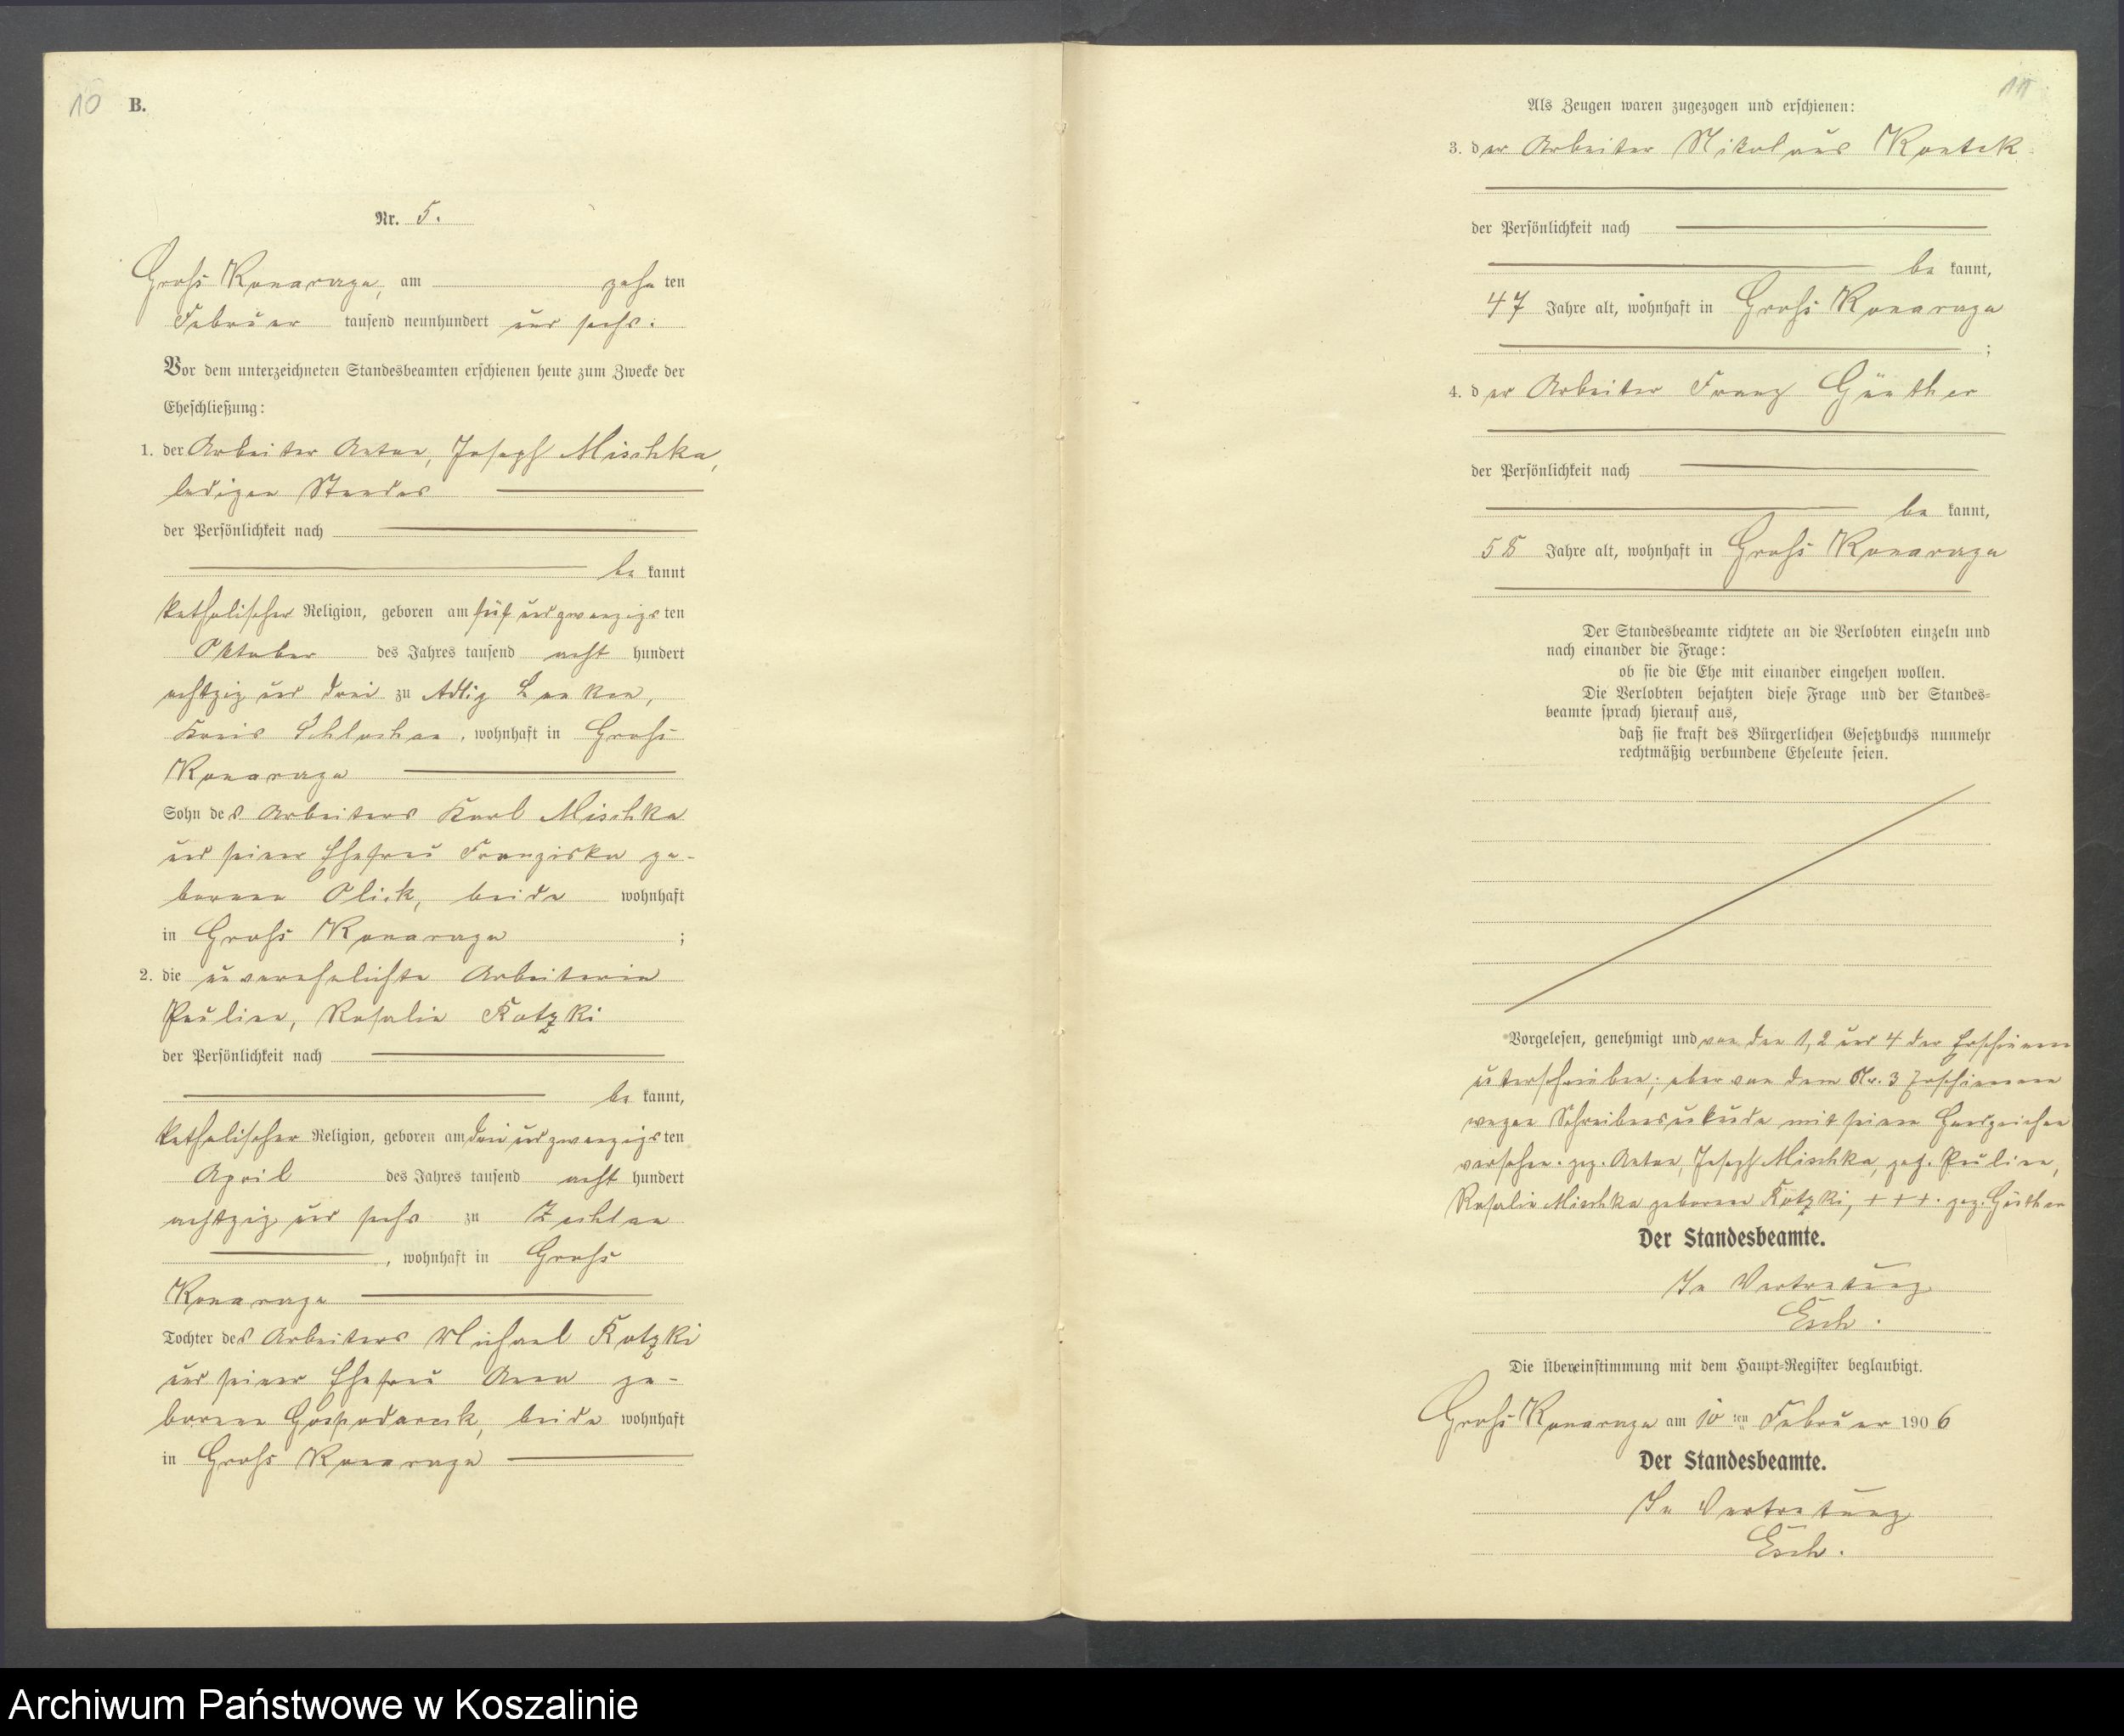 10 B.
Nr. 5.
Groß Konarczyn, am zehnten
Februar tausend neunhundert und sechs.
Vor dem unterzeichneten Standesbeamten erschienen heute zum Zwecke der
Eheschließung:
1. der Arbeiter Anton, Joseph Mischka,
ledigen Standes
der Persönlichkeit nach
be kannt
katholischer Religion, geboren am fünfundzwanzigsten
Oktober des Jahres tausend acht hundert
achtzig und drei zu Adlig
Kreis Schlochau, wohnhaft in Groß
Sohn des Arbeiters Karl Mischka
und seiner Ehefrau Franziska ge-
borenen Olick, beide wohnhaft
in Groß ;
2. die unverehelichte Arbeiterin
Pauline, Rosalie Kotzki
der Persönlichkeit nach
be kannt,
katholischer Religion, geboren am dreiundzwanzigsten
April des Jahres tausend acht hundert
achtzig und sechs zu Zechlau
, wohnhaft in Groß
Tochter des Arbeiters Michael Kotzki
und seiner Ehefrau Anna ge-
borenen beide wohnhaft
in Groß
11
Als Zeugen waren zugezogen und erschienen:
3. der Arbeiter Nikolaus Kontek
der Persönlichkeit nach
be kannt,
47 Jahre alt, wohnhaft in Groß
;
4. der Arbeiter Franz Günther
der Persönlichkeit nach
be kannt,
58 Jahre alt, wohnhaft in Groß
Der Standesbeamte richtete an die Verlobten einzeln und
nach einander die Frage:
ob sie die Ehe mit einander eingehen wollen.
Die Verlobten bejahten diese Frage und der Standes=
beamte sprach hierauf aus,
daß sie kraft des Bürgerlichen Gesetzbuchs nunmehr
rechtmäßig verbundene Eheleute seien.
Vorgelesen, genehmigt und von den 1, 2 und 4 der Erschienenen
unterschrieben; aber von dem Nr. 3 Erschienenen
wegen Schreibensunkunde mit seinem Handzeichen
versehen. gez. Anton, Joseph Mischka, gez. Pauline,
Rosalie Mischka geborene Kotzki, + + +. gez. Günther
Der Standesbeamte.
In Vertretung
Esch.
Die Übereinstimmung mit dem Haupt=Register beglaubigt.
Groß am 10 ten Februar 1906
Der Standesbeamte.
In Vertretung
Esch.
Archiwum Państwowe w Koszalinie